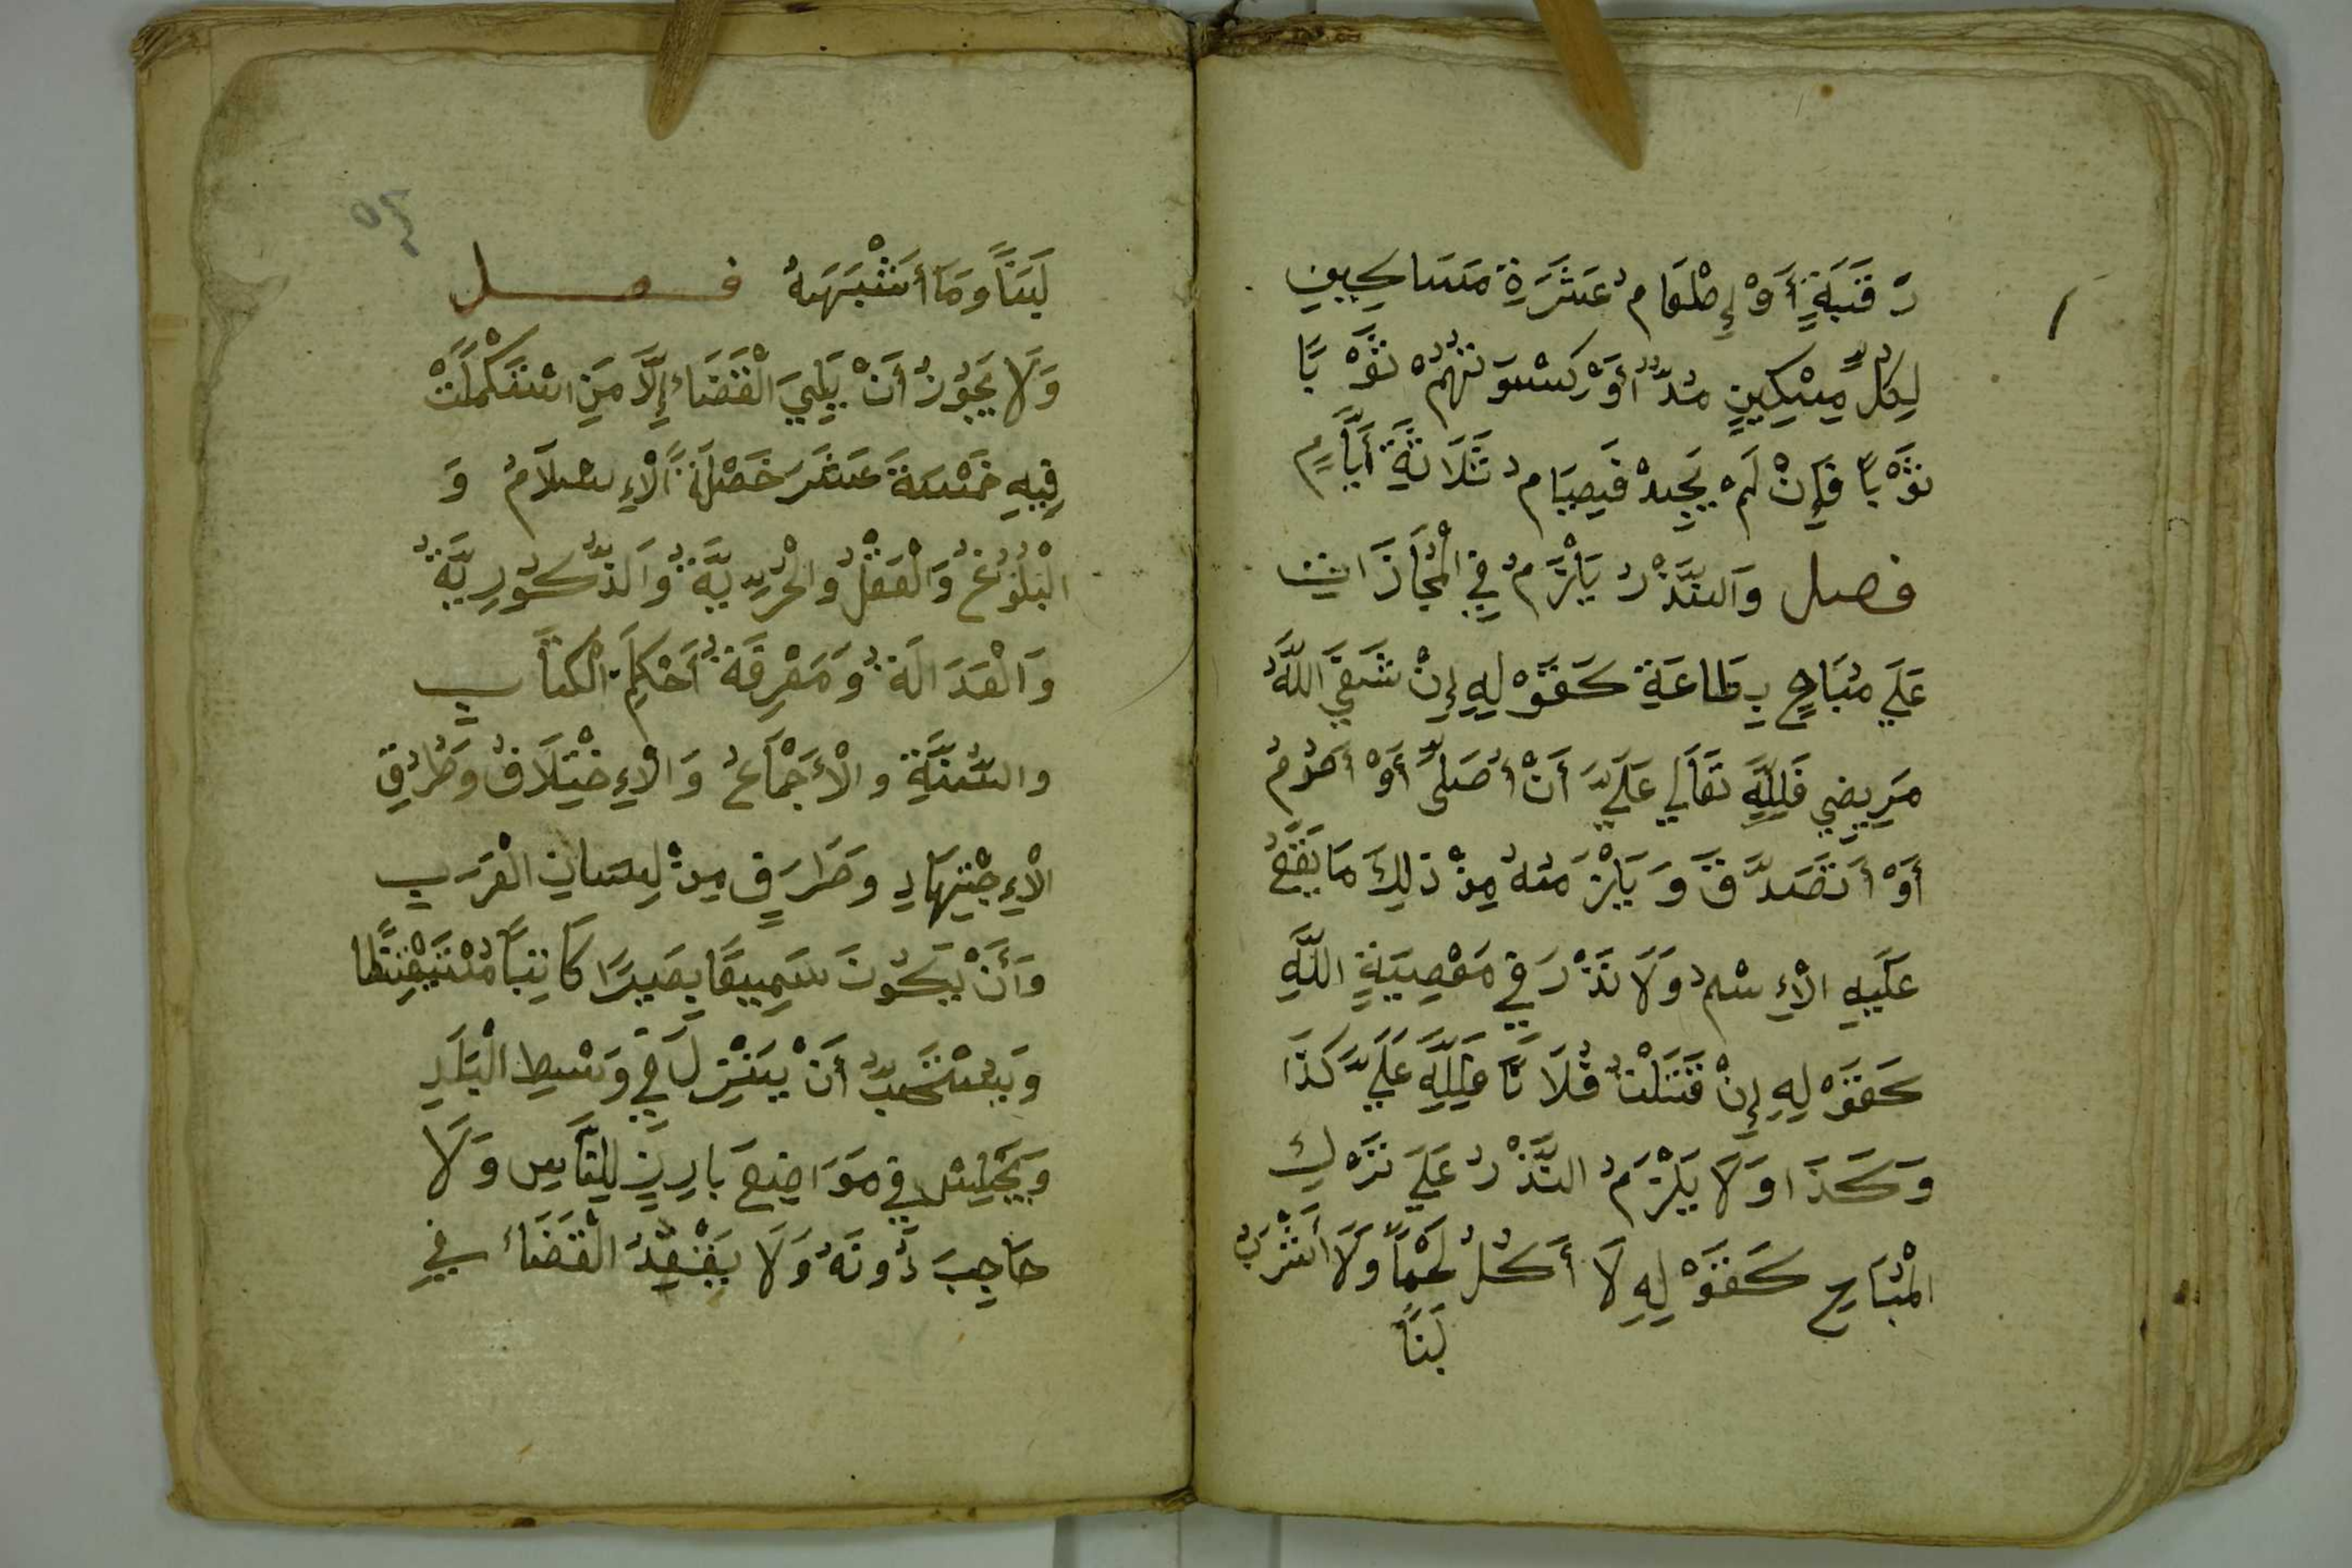 رَقَبَةٍ أَوْ إِطْعَامُ عَشَرَةِ مَسَاكِينِ
لِكُلِّ مِسْكِينٍ مُدٌّ أَوْ كِسْوَتُهُمْ ثَوْبًا
ثَوْبًا فَإِنْ لَمْ يَجِدْ فَصِيَامُ ثَلَاثَةِ أَيَّامٍ
فصل وَالنَّذْرُ يَلْزَمُ فِي الْمُجَازَات
عَلَي مُبَاحٍ بِطَاعَةٍ كَقَوْلِهِ إِنْ شَفَي اللَّهُ
مَرِيضِي فَلِلَّهِ تَعَالَي عَلَيَّ أَنْ أُصَلِّى أَوْ أَصُومُ
أَوْ أَتَصَدَّقَ وَيَلْزَمُهُ مِنْ ذَلِكَ مَا يَقَعُ
عَلَيْهِ الْإِسْمُ وَلَا نَذْرَ فِي مَعْصِيَةِ اللَّهِ
كَقَوْلِهِ إِنْ قَتَلْتُ فُلَانًا فَلِلَّهِ عَلَيَّ كَذَا
وَكَذَا وَلَا يَلْزَمُ النَّذْرُ عَلَي تَرْكِ
الْمُبَاحِ كَقَوْلِهِ لَا أَكُلُ لَحْمًا وَلَا أَشْرَبُ
لَبَنًا
لَبَنًا وَمَا أَشْبَهَهُ فصل
وَلَا يَجُوزُ أَنْ يَلِيَ الْقَضَاء إِلَّا مَنِ اسْتَكْمَلَتْ
فِيهِ خَمْسَةَ عَشَرَ خَصْلَةً الْإِسْلَامُ وَ
الْبُلُوغُ وَالْعَقْلُ وَالْحُرِيَّةُ وَالذُّكُورِيَّةُ
وَالْعَدَالَةُ وَمَعْرِفَةُ أَحْكَامِ الْكِتَابِ
وَالسُّنَّةِ وَالْأَجْمَاعُ وَالْإِخْتِلَافُ وَطُرُقِ
الْإِجْتِهَادِ وَطَرَفٍ مِنْ لِسَانِ الْعَرَبِ
وَأَنْ يَكُونَ سَمِيعًا بَصِيرًا كَاتِبًا مُسْتَيْقِظًا
وَيُسْتَحَبُّ أَنْ يَنْزِلَ فِي وَسَطِ الْبَلَدِ
وَيَجْلِسُ فِي مَوَاضِعَ بَارِزٍ لِلنَّاسِ وَلَا
حَاجِبَ دُونَهُ وَلَا يَقْعُدُ الْقَضَاءُ فِي